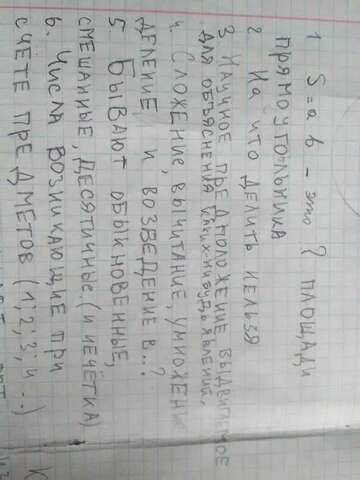 1 S=a b - это ? площади
прямоугольника
2 На что делить нельзя
3 Научное предположение выдвигаемое
для объяснения каких-нибудь явлений.
4. Сложение, вычитание, умножение
деление и возведение в...?
5. Бывают обыкновенные,
смешанные, десятичные. (и нечётка)
6. Числа возникающие при
счёте предметов (1,2,3,4...)